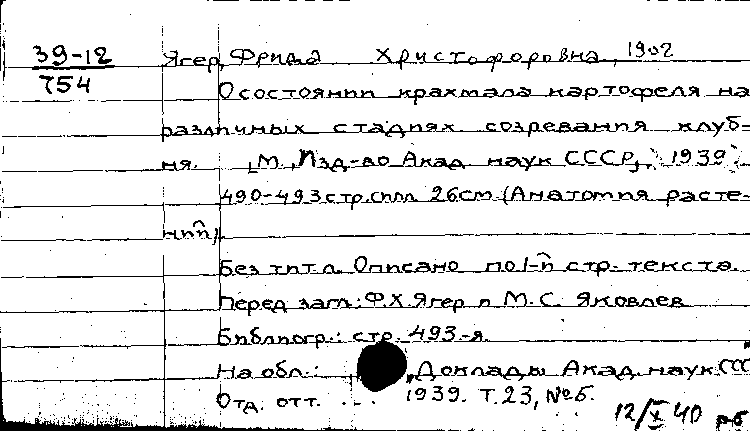 39-12
754
Ягер, Фрида Христофоровна, 1902
О состоянии крахмала картофеля на
различных стадиях созревания клуб-
ня. [М., Изд-во Акад. наук СССР, 1939]
490-493 стр. илл. 26см. (Анатомия расте-
ний).
Без тит. л. Описано по 1-й стр. текста.
Перед загл.: Ф.Х. Ягер и М.С. Яковлев
Библиогр.: стр. 493-я.
На обл.: "Доклады Акад. наук СССР"
Отд. отт. ... 1939. Т. 23, №5.
12/X 40 рб